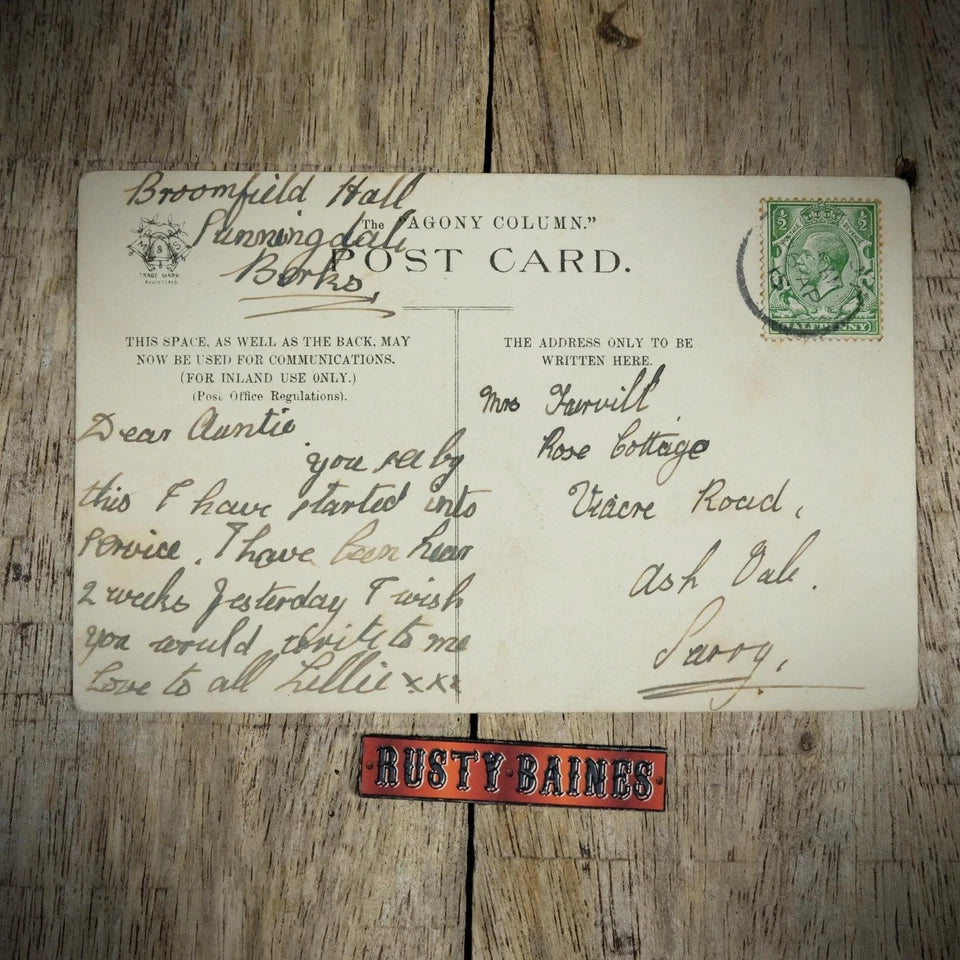 Broomfield Hall
Sunningdale
Berks
The "AGONY COLUMN."
POST CARD.
M & S
TRADE MARK
REGISTERED
THIS SPACE, AS WELL AS THE BACK, MAY
NOW BE USED FOR COMMUNICATIONS.
(FOR INLAND USE ONLY.)
(Post Office Regulations).
THE ADDRESS ONLY TO BE
WRITTEN HERE.
½ ½
POSTAGE REVENUE
HALFPENNY
Dear Auntie
you see by
this I have started into
service. I have been hear
2 weeks Yesterday I wish
you would write to me
Love to all Lillie xxx
Mrs
Rose Cottage
Road,
Ash Vale.
Surry,
RUSTY·BAINES